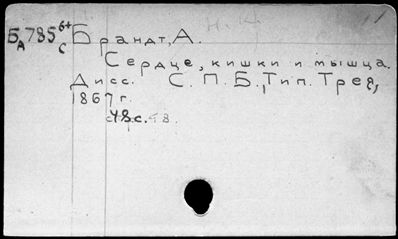 Б 785 64 Брандт, А.
А С
Сердце, кишки и мышца.
Дисс. С.П.Б., Тип. Трея,
1867 г.
48 с.